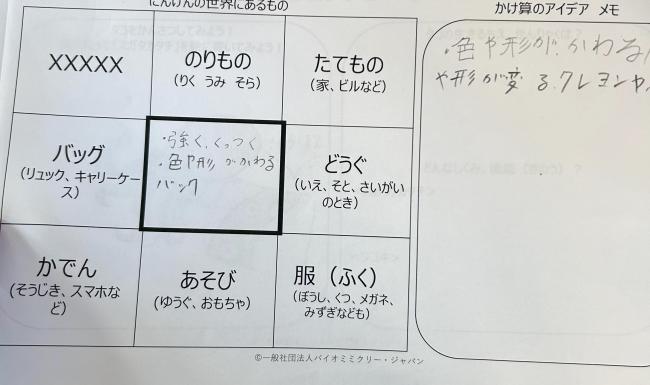 にんげんの世界にあるもの
かけ算のアイデア メモ
XXXXX
のりもの
(りく うみ そら)
たてもの
(家、ビルなど)
バッグ
(リュック、キャリーケー
ス)
・強く、くっつく
・色や形がかわる
バック
どうぐ
(いえ、そと、さいがい
のとき)
かでん
(そうじき、スマホな
ど)
あそび
(ゆうぐ、おもちゃ)
服（ふく）
(ぼうし、くつ、メガネ、
みずぎなども)
・色や形が、かわる
や形が変る.クレヨンや
©一般社団法人バイオミミクリー・ジャパン